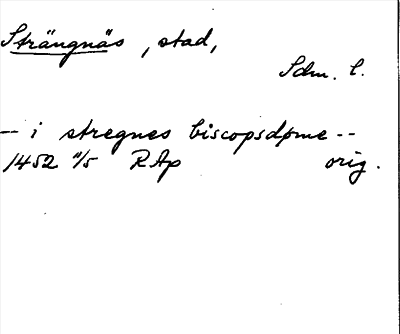 Strängnäs, stad,
Sdm. l.
-- i stregnes biscopsdøme --
1452 11/5 RAp orig.